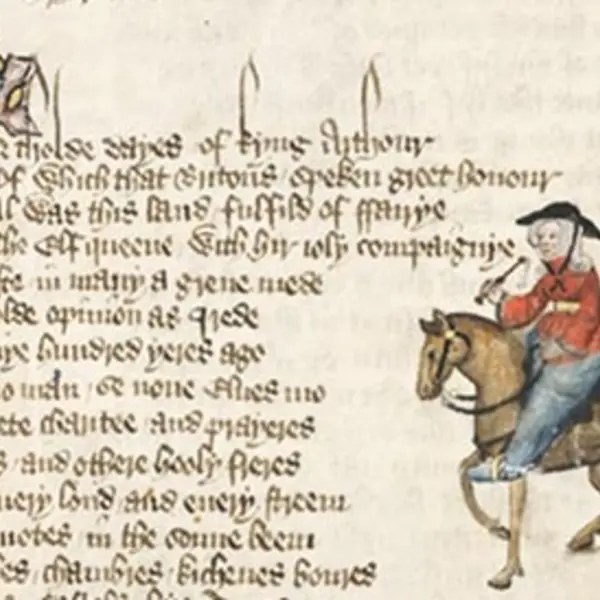 tholde dayes of kyng Arthour
Of which that Britons speken greet honour
l was this land fulfild of ffairye
he Elf queene with hir ioly compaignye
te in many a grene mede
olde opinion as I rede
ye hundred yeres ago
o man se none Elues mo
ete charitee and prayeres
s and othere hooly freres
uery lond and euery streem
motes in the sonne beem
es chambres kichenes boures